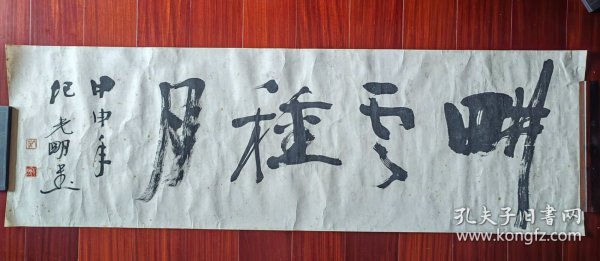 畊雲種月
甲申年
纪光明书
孔夫子旧书网
www.kongfz.com